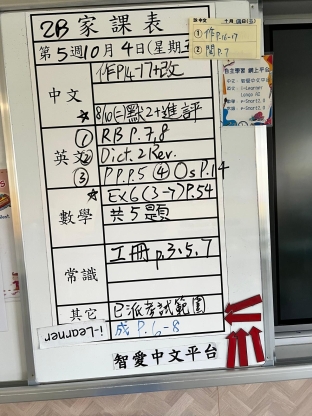 2B 家課表
第5週10月4日(星期五
中文
作P14-17+改
★8/10(二)默2+進評
英文
① RB P.7,8
② Dict.2 Rev.
③ P.P. P.5 ④ Os P.14
數學
★ Ex6(3→)P.54
共5題
常識
工冊 p.3、5、7
其它
已派考試範圍
成 P.6-8
i-Learner
智愛中文平台
① 作P.16-17
② 閱P.7
自主學習 網上平台